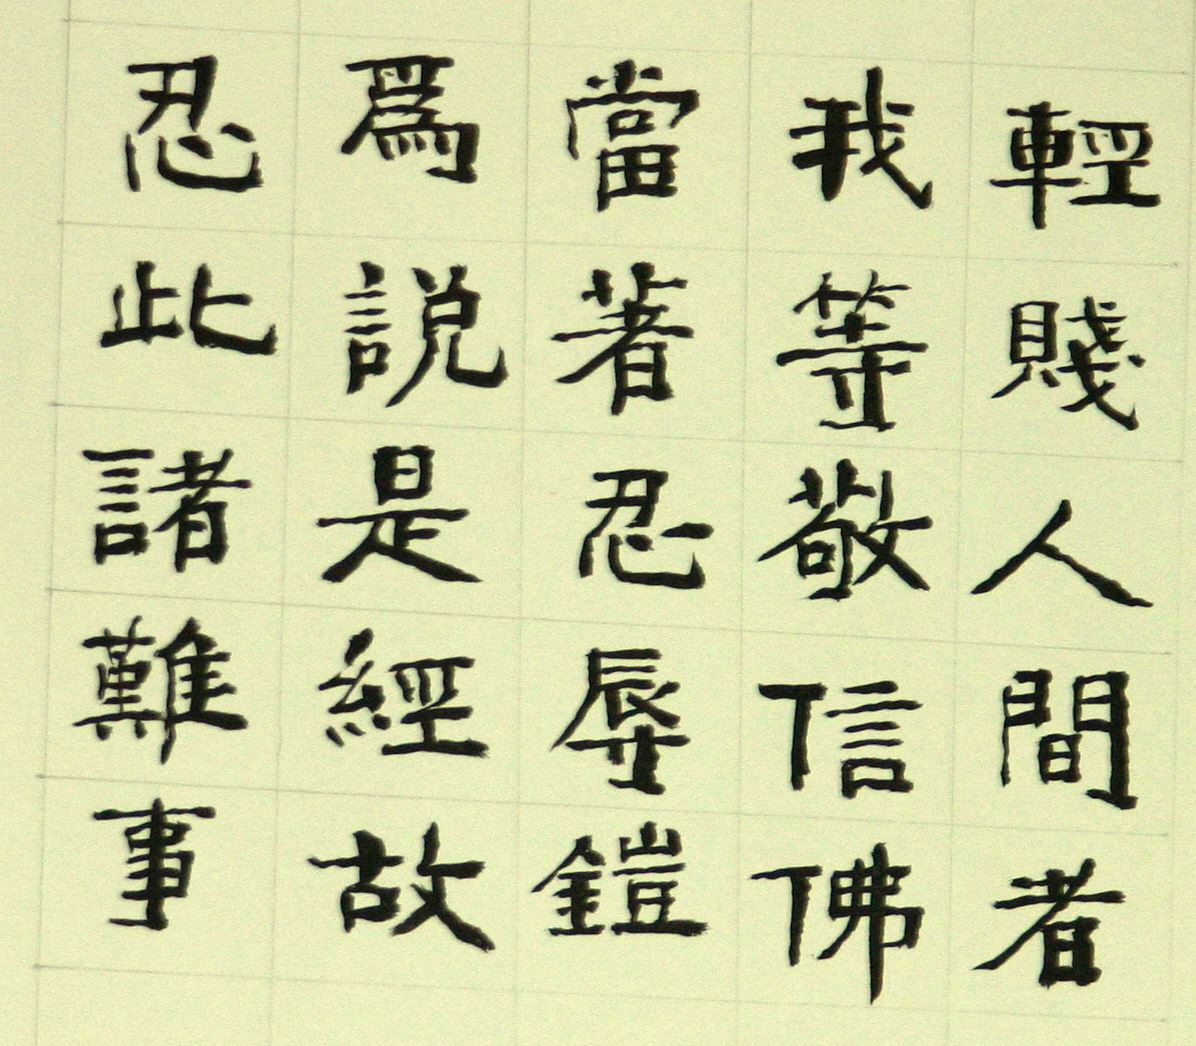 輕賤人間者
我等敬信佛
當著忍辱鎧
爲說是經故
忍此諸難事